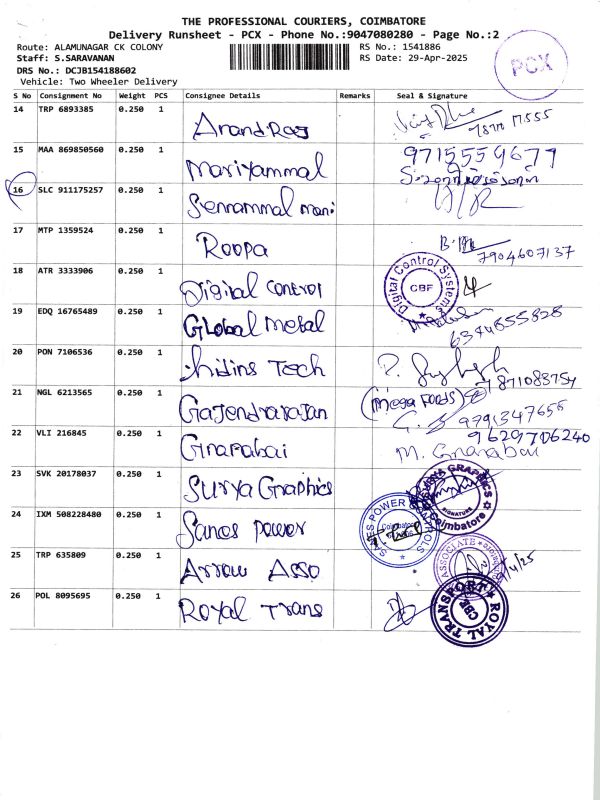 THE PROFESSIONAL COURIERS, COIMBATORE
Delivery Runsheet - PCX - Phone No.:9047080280 - Page No.:2
Route: ALAMUNAGAR CK COLONY
RS No.: 1541886
Staff: S.SARAVANAN
RS Date: 29-Apr-2025
DRS No.: DCJB154188602
Vehicle: Two Wheeler Delivery
PCX
S No Consignment No Weight PCS Consignee Details Remarks Seal & Signature
14 TRP 6893385 0.250 1 AnandRaj
15 MAA 869850560 0.250 1 Mariyammal 9715559677
16 SLC 911175257 0.250 1 Sennammal mani
17 MTP 1359524 0.250 1 Roopa 7904607137
18 ATR 3333906 0.250 1 Digital Control
Digital Control Systems CBF
19 EDQ 16765489 0.250 1 Global Metal
20 PON 7106536 0.250 1 Tech
21 NGL 6213565 0.250 1 Gajendrarajan (Mega Foods)
9791347655
22 VLI 216845 0.250 1 Gnanabai 9629706240
M. Gnanabai
23 SVK 20178037 0.250 1 Surya Graphics
GRAPHICS SIGNATURE Coimbatore
24 IXM 508228480 0.250 1 Sanes Power
POWER CONTROLS Coimbatore
25 TRP 635809 0.250 1 Arrow Asso
ASSOCIATE
26 POL 8095695 0.250 1 Royal Trans
ROYAL TRANSPORT CBF